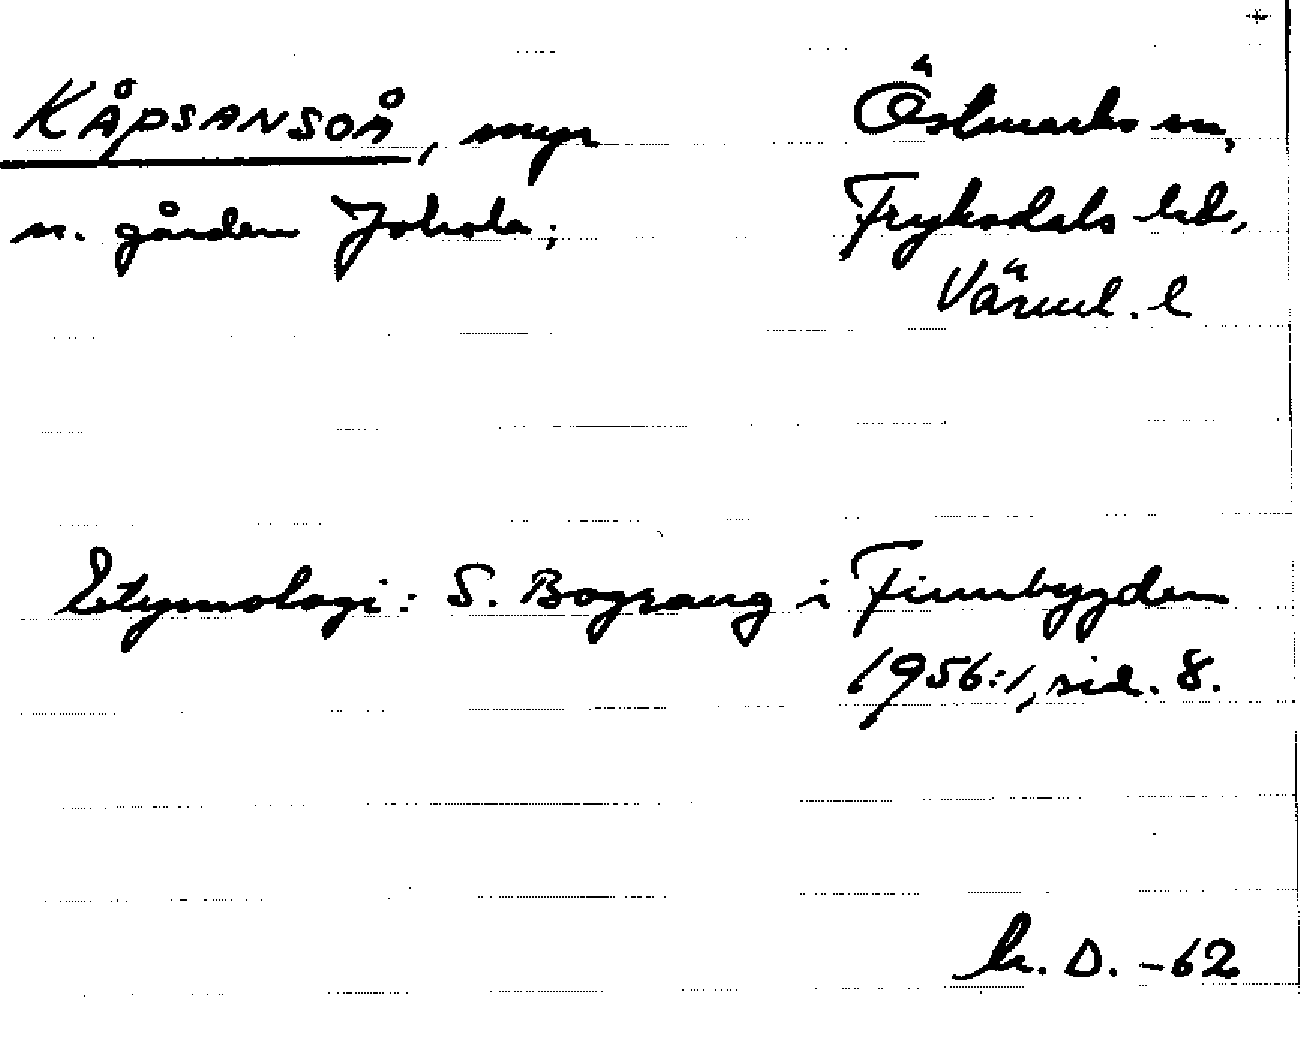 KÅPSANSOÅ, myr
n. gården Johola;
Östmarks sn,
Fryksdals hd,
Värml. l
Etymologi: S. Bograng i Finnbygden
1956:1, sid. 8.
D. -62